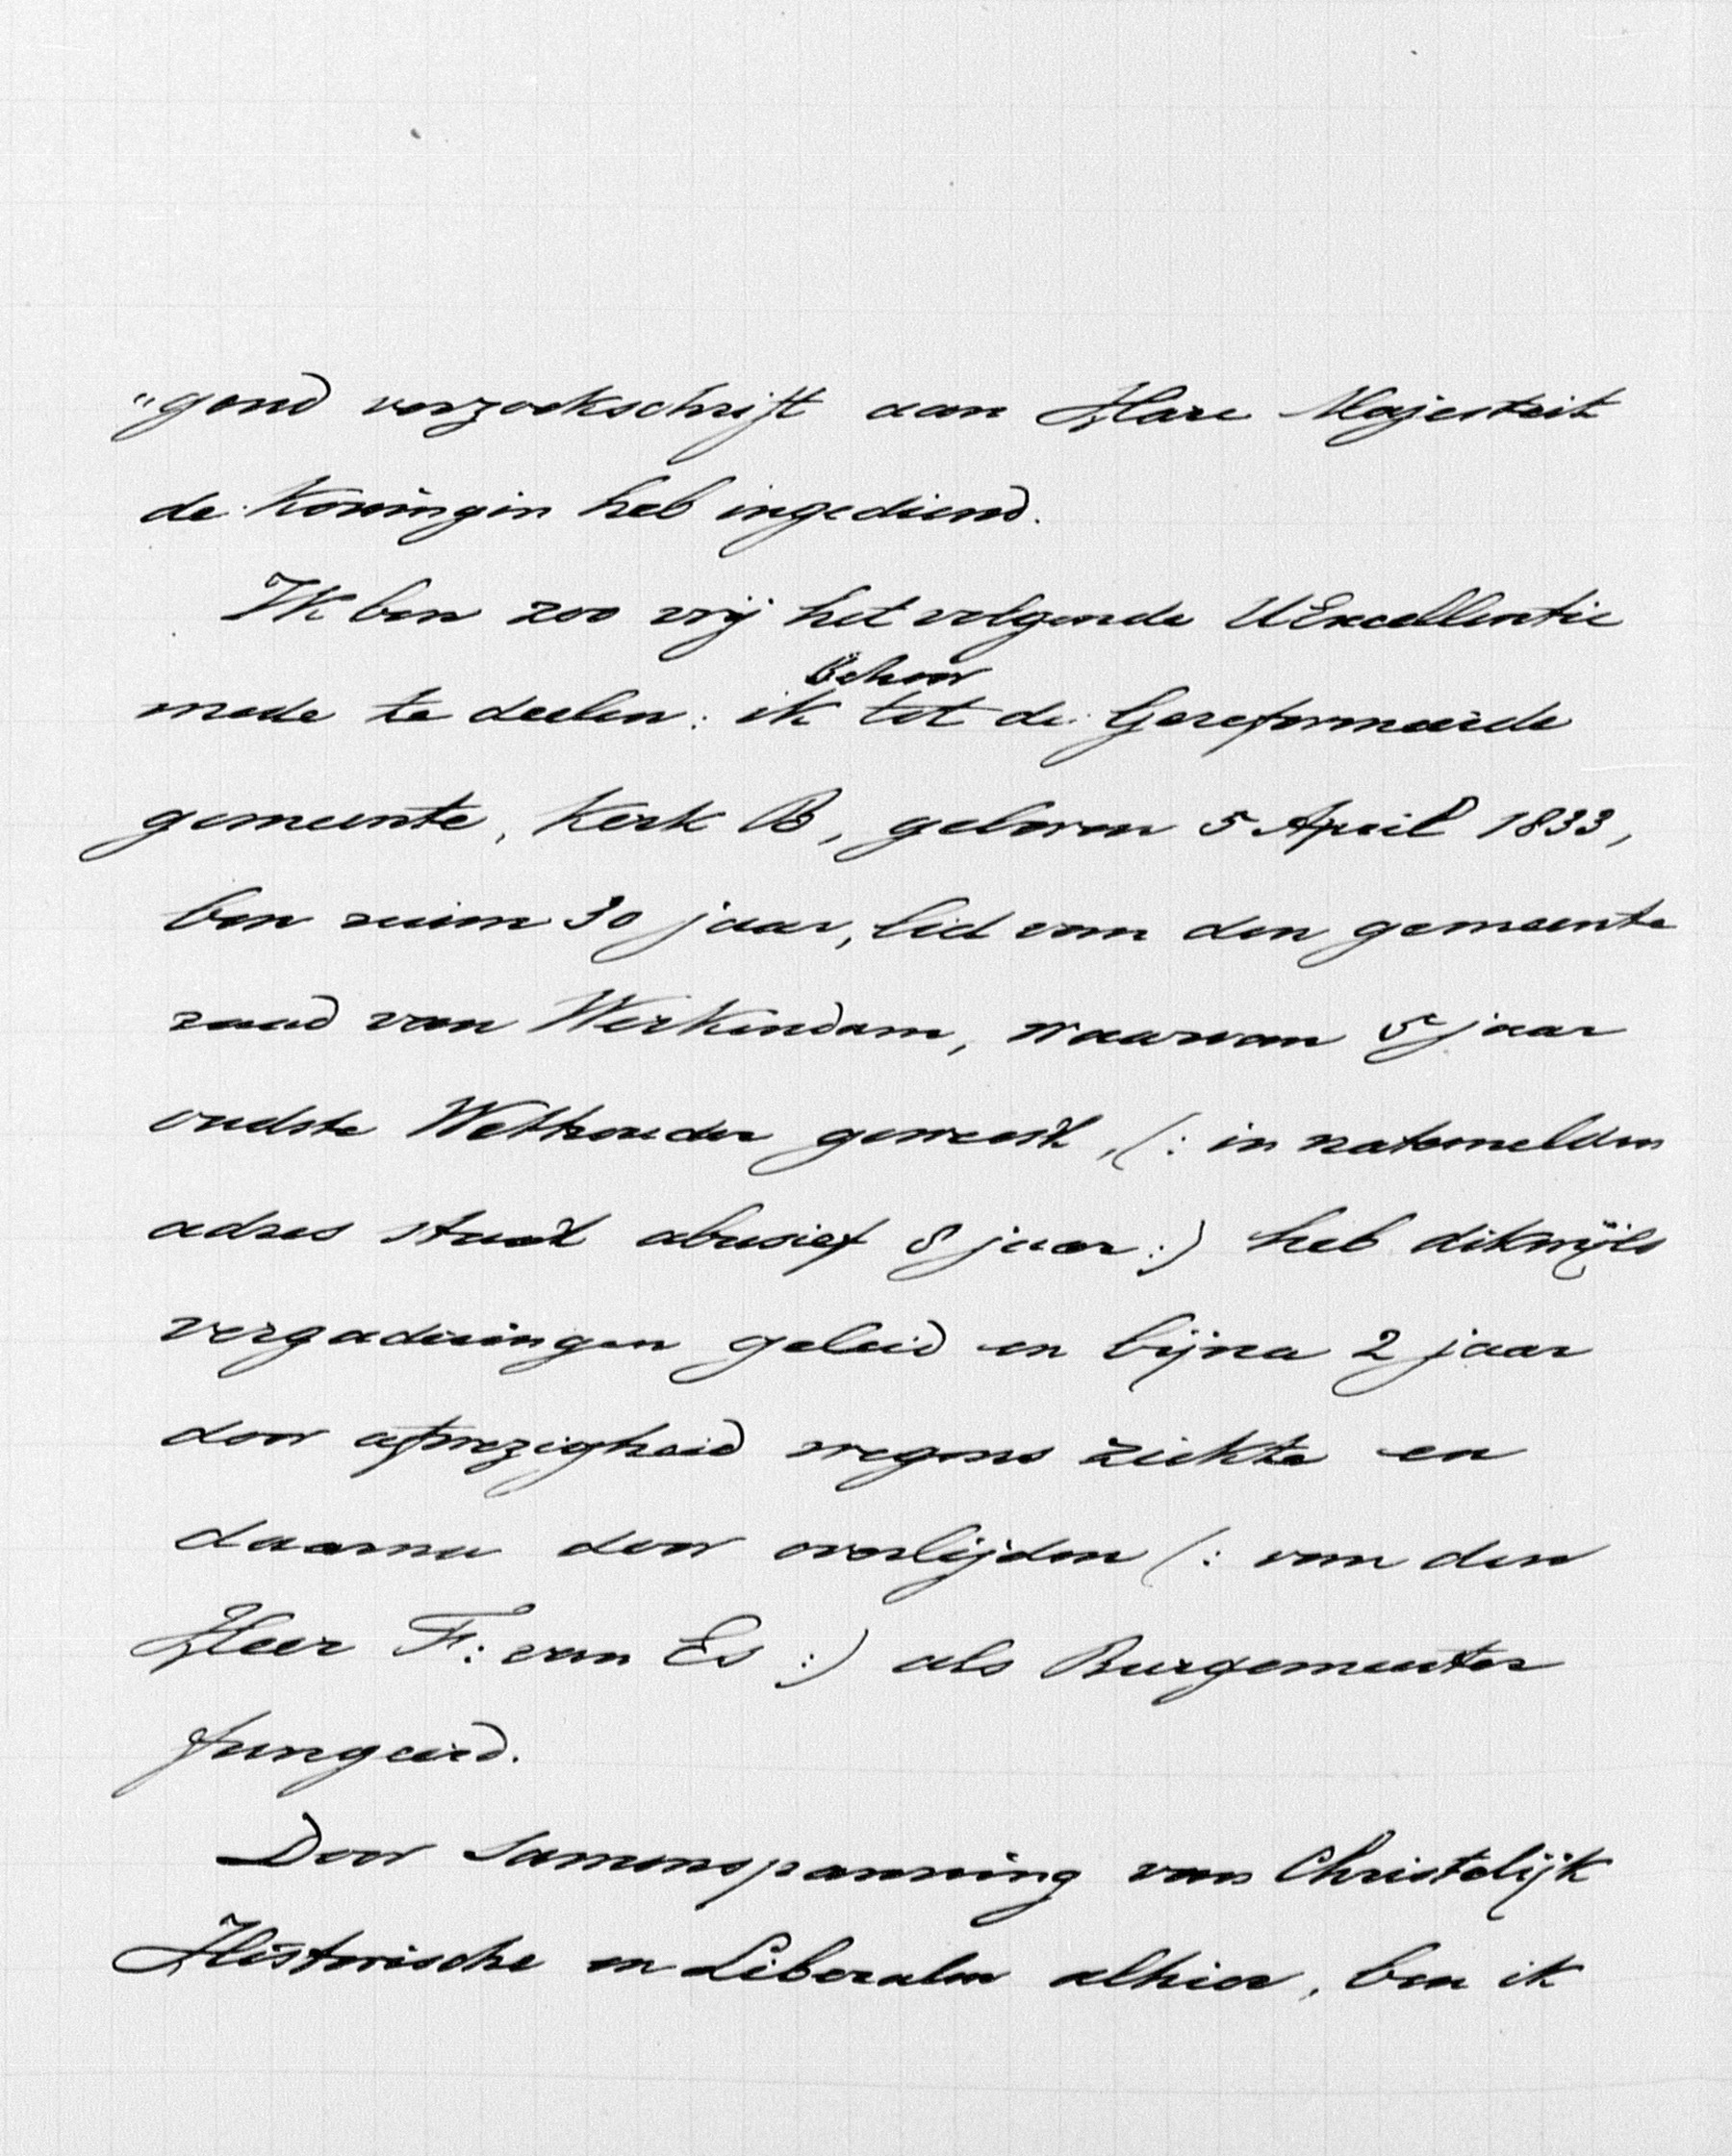 "gend verzoekschrift aan Hare Majesteit
de Koningin heb ingediend.
Ik ben zoo vrij het volgende UExcellentie
behoor
mede te deelen: ik tot de Gereformeerde
gemeente, Kerk B, geboren 5 April 1833,
ben ruim 30 jaar, lid van den gemeente
raad van Werkendam, waarvan 5 jaar
oudste Wethouder geweest, (: in natemelden
adres staat abusief 8 jaar :) heb dikwijls
vergaderingen geleid en bijna 2 jaar
door afwezigheid wegens ziekte en
daarna door overlijden (: van den
Heer F: van Es :) als Burgemeester
fungeerd.
Door Samenspanning van Christelijk
Historische en Liberalen alhier, ben ik